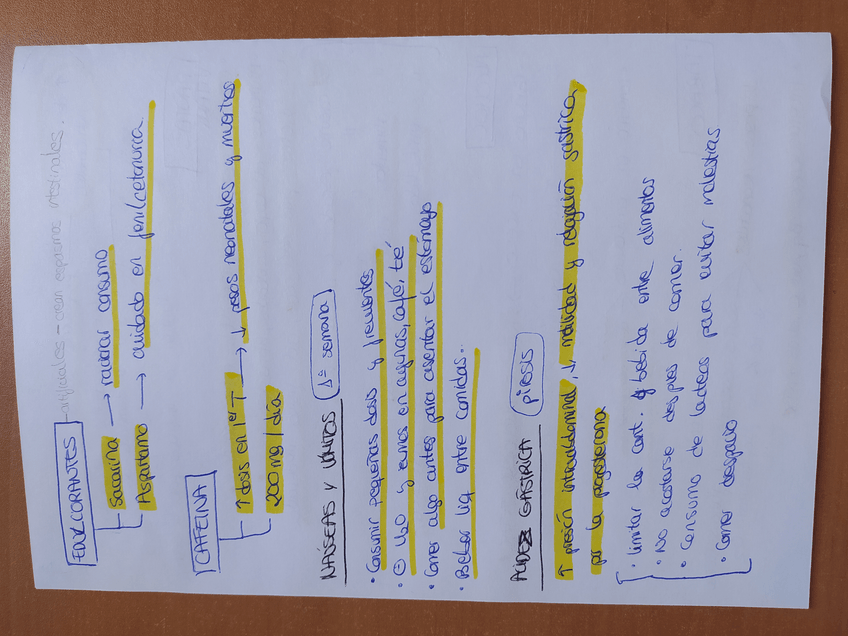 EDULCORANTES - artificiales - crean espasmos intestinales.
Sacarina → racionar consumo
Aspartamo → cuidado en fenilcetonuria.
CAFEINA
↑ dosis en 1er T → ↓ pesos neonatales y muertes
200 mg / día
NAÚSEAS Y VÓMITOS (1ª semana)
• Consumir pequeñas dosis y frecuentes
• H2O y en ayunas, café, té
• Comer algo antes para asentar el estómago
• Beber líq. entre comidas.
ACIDEZ GÁSTRICA (pirosis)
↑ presión intraabdominal, ↓ motilidad y relajación gástrica,
por la progesterona
• limitar la cant. de bebida entre alimentos
• No acostarse despúes de comer.
• Consumo de lácteos para evitar molestias
• Comer despacio